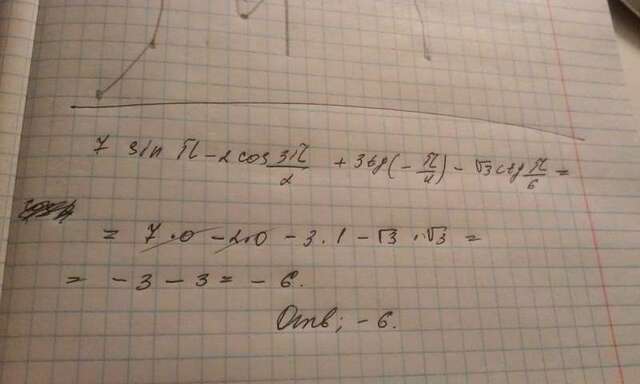 7 sin π - 2 cos 3π/2 + 3tg(-π/4) - √3 ctg π/6 =
= 7·0 - 2·0 - 3·1 - √3·√3 =
= -3 - 3 = -6.
Отв; -6.